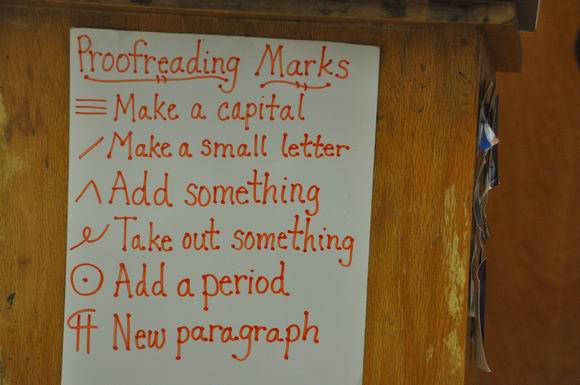 Proofreading Marks
≡ Make a capital
/ Make a small letter
^ Add something
℮ Take out something
⊙ Add a period
¶ New paragraph